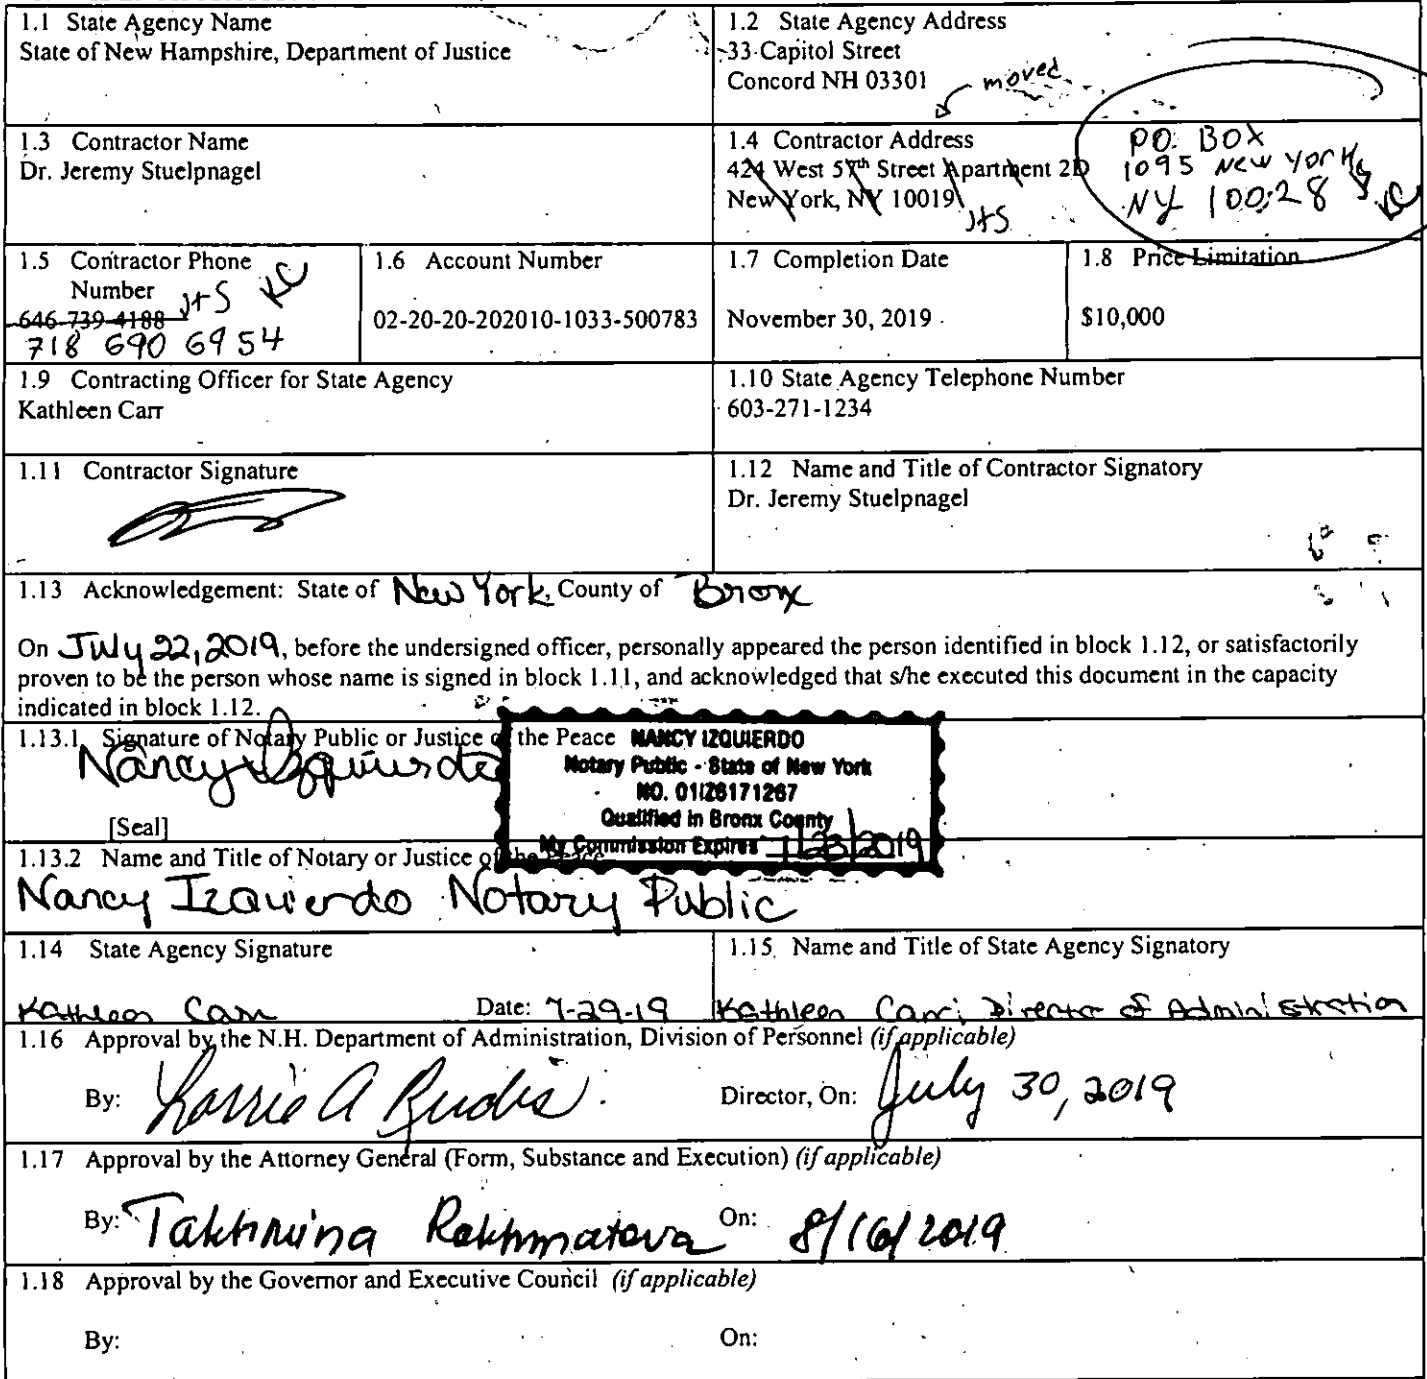 1.1 State Agency Name
State of New Hampshire, Department of Justice
1.2 State Agency Address
33 Capitol Street
Concord NH 03301
moved
1.3 Contractor Name
Dr. Jeremy Stuelpnagel
1.4 Contractor Address
424 West 57th Street Apartment 2D
New York, NY 10019
JtS
PO. BOX
1095 New York
NY 10028
KC
1.5 Contractor Phone
Number
JtS KC
646-739-4188
718 690 6954
1.6 Account Number
02-20-20-202010-1033-500783
1.7 Completion Date
November 30, 2019
1.8 Price Limitation
$10,000
1.9 Contracting Officer for State Agency
Kathleen Carr
1.10 State Agency Telephone Number
603-271-1234
1.11 Contractor Signature
1.12 Name and Title of Contractor Signatory
Dr. Jeremy Stuelpnagel
1.13 Acknowledgement: State of New York, County of Bronx
On July 22, 2019, before the undersigned officer, personally appeared the person identified in block 1.12, or satisfactorily
proven to be the person whose name is signed in block 1.11, and acknowledged that s/he executed this document in the capacity
indicated in block 1.12.
1.13.1 Signature of Notary Public or Justice of the Peace
Nancy Izquierdo
[Seal]
NANCY IZQUIERDO
Notary Public - State of New York
NO. 01IZ6171267
Qualified in Bronx County
My Commission Expires 1/23/2019
1.13.2 Name and Title of Notary or Justice of the Peace
Nancy Izquierdo Notary Public
1.14 State Agency Signature
Kathleen Carr Date: 7-29-19
1.15 Name and Title of State Agency Signatory
Kathleen Carr, Director of Administration
1.16 Approval by the N.H. Department of Administration, Division of Personnel (if applicable)
By: Lorrie A Rudis Director, On: July 30, 2019
1.17 Approval by the Attorney General (Form, Substance and Execution) (if applicable)
By: Takhmina Rakhmatova On: 8/16/2019
1.18 Approval by the Governor and Executive Council (if applicable)
By: On: